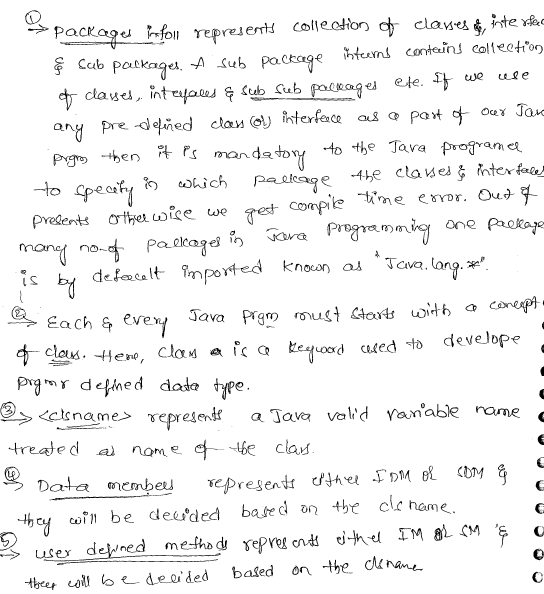 ①
→ Packages infoll represents collection of classes &, interfac
& Sub packages. A sub package interns contains collection
of classes, interfaces & sub sub packages etc. If we use
any pre-defined class (or) interface as a part of our Java
Prgm then it is mandatory to the Java programer
to specify in which package the classes & interfaces
presents otherwise we get compile time error. Out of
many no-of packages in Java programming one package
is by defacult imported known as "Java.lang.*".
② → Each & every Java Prgm must starts with a concept
of class. Here, class is a keyword used to develope
prgmr defined data type.
③ → <clsname> represents a Java valid variable name
treated as name of the class.
④ → Data members represents either IDM or SDM &
they will be decided based on the clsname.
⑤ → user defined methods represents either IM or SM &
they will be decided based on the clsname